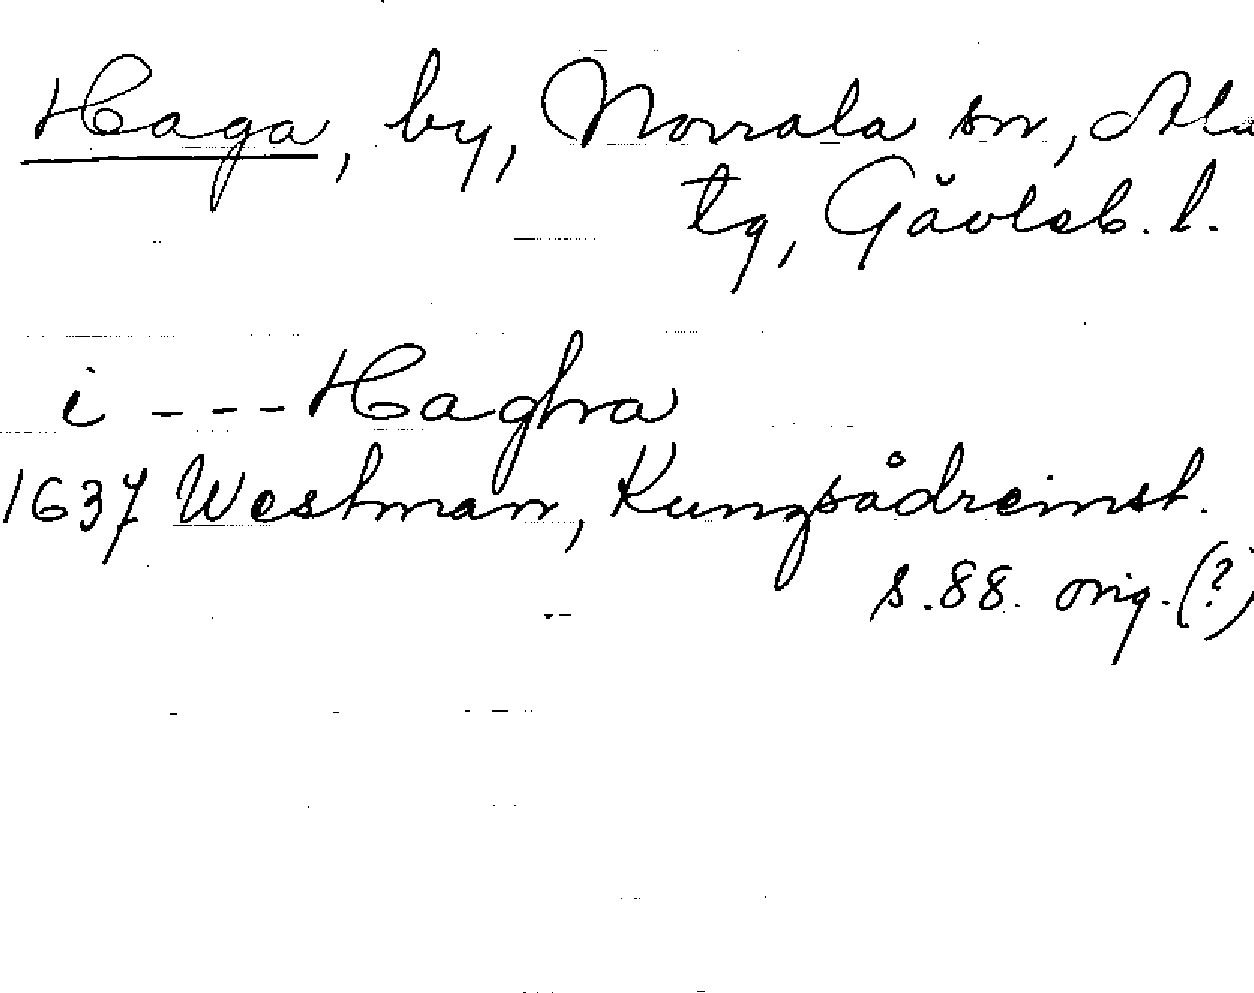 Haga, by, Norrala sn, Ala
tg, Gävleb. l.
i - - - Haghra
1637 Westman, Kungsådreinst.
s. 88. orig. (?)